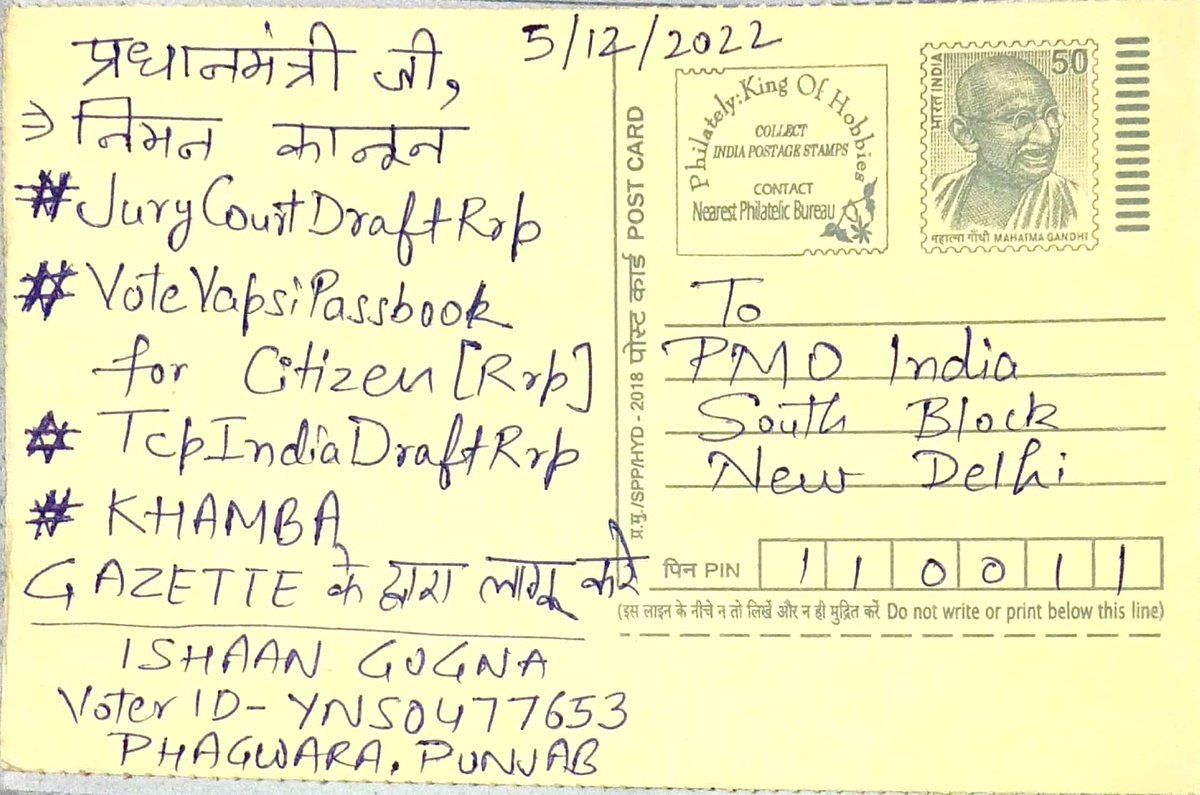 प्रधानमंत्री जी,
5/12/2022
⇒ निमन कानून
#JuryCourtDraftRrp
#VoteVapsiPassbook
for Citizen [Rrp]
# TcpIndiaDraftRrp
# KHAMBA,
GAZETTE के द्वारा लागू करे
ISHAAN GOGNA
Voter ID- YNS0477653
PHAGWARA, PUNJAB
प्र.मु./SPP/HYD - 2018 पोस्ट कार्ड POST CARD
Philately: King Of Hobbies
COLLECT
INDIA POSTAGE STAMPS
CONTACT
Nearest Philatelic Bureau
भारत INDIA
50
महात्मा गाँधी MAHATMA GANDHI
To
PMO India
South Block
New Delhi
पिन PIN 110011
(इस लाइन के नीचे न तो लिखें और न ही मुद्रित करें Do not write or print below this line)